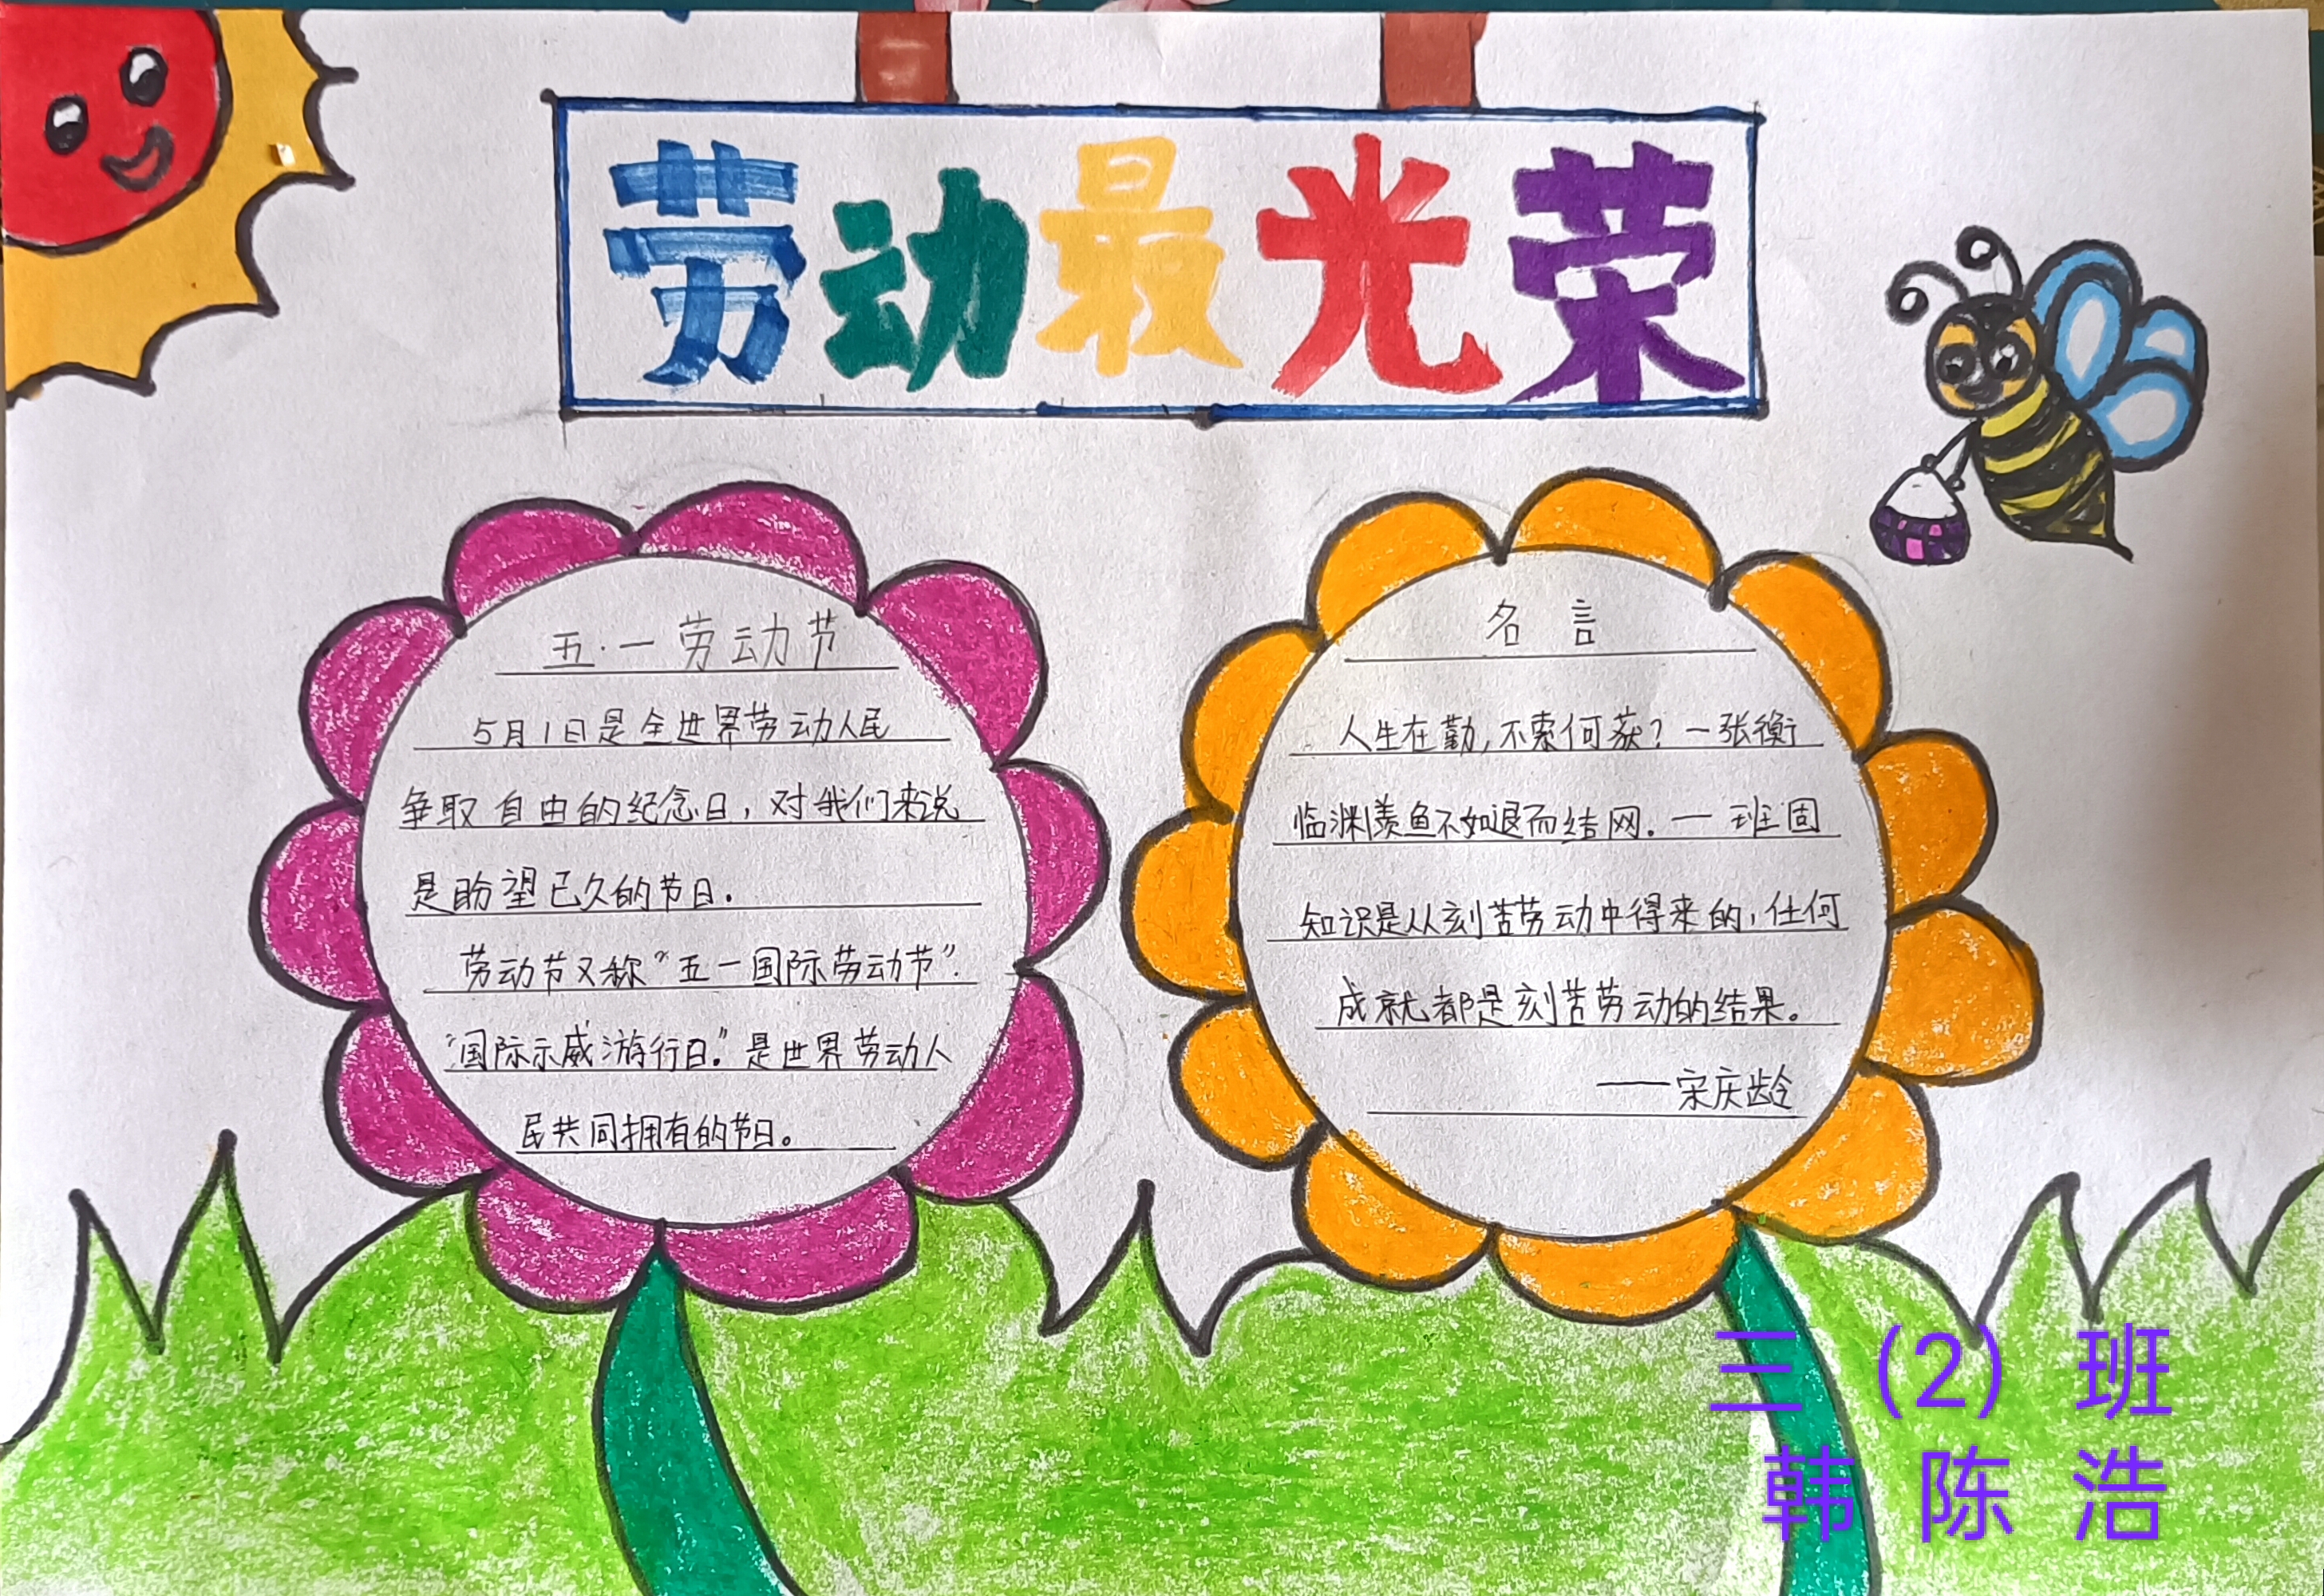 劳动最光荣
五·一劳动节
5月1日是全世界劳动人民
争取自由的纪念日，对我们来说
是盼望已久的节日.
劳动节又称“五一国际劳动节”.
“国际示威游行日.”是世界劳动人
民共同拥有的节日。
名言
人生在勤,不索何获？一张衡
临渊羡鱼不如退而结网.一班固
知识是从刻苦劳动中得来的,任何
成就都是刻苦劳动的结果。
——宋庆龄
三（2）班
韩陈浩